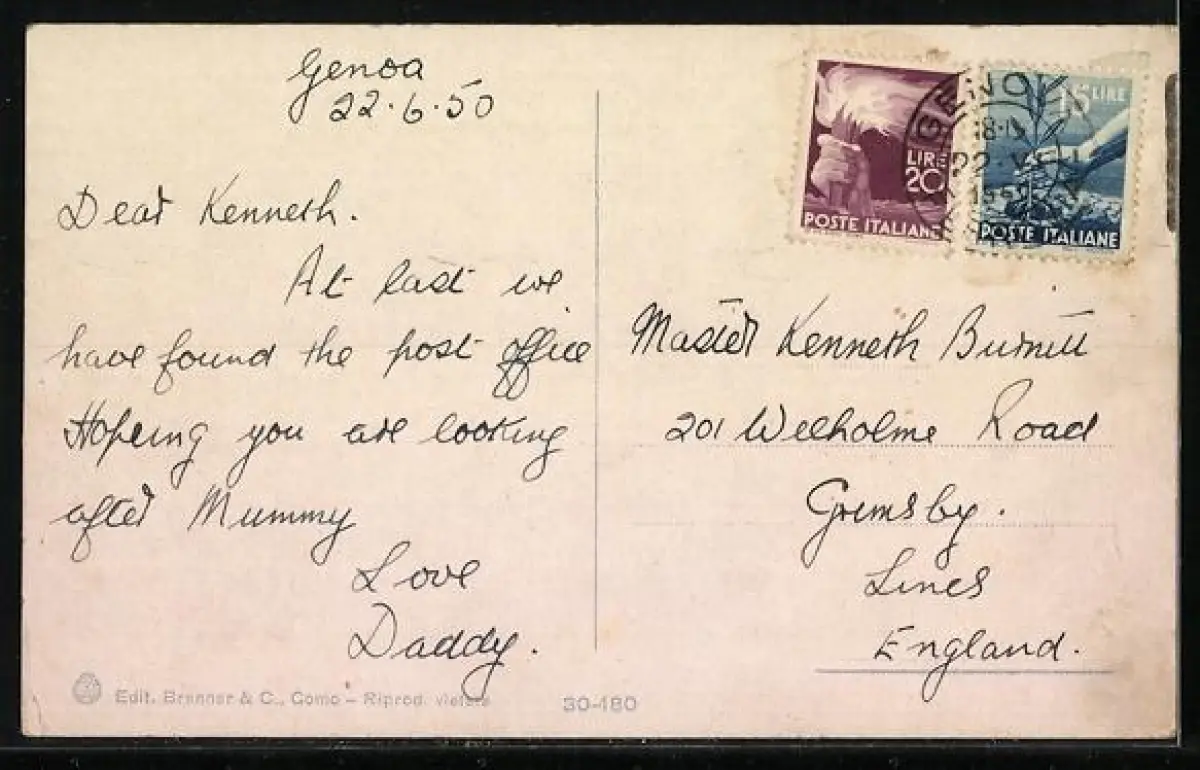 Genoa
22.6.50
Dear Kenneth.
At last we
have found the post office
Hopeing you are looking
after Mummy
Love
Daddy.
Edit. Brunner & C., Como – Riprod. vietata
30-480
LIRE
20
POSTE ITALIANE
15 LIRE
POSTE ITALIANE
GENOVA
22.VI
1950
Master Kenneth Burnitt
201 Weelholme Road
Grimsby.
Lincs
England.